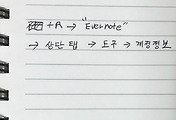 +R → "Evernote"
→ 상단 탭 → 도구 → 계정정보